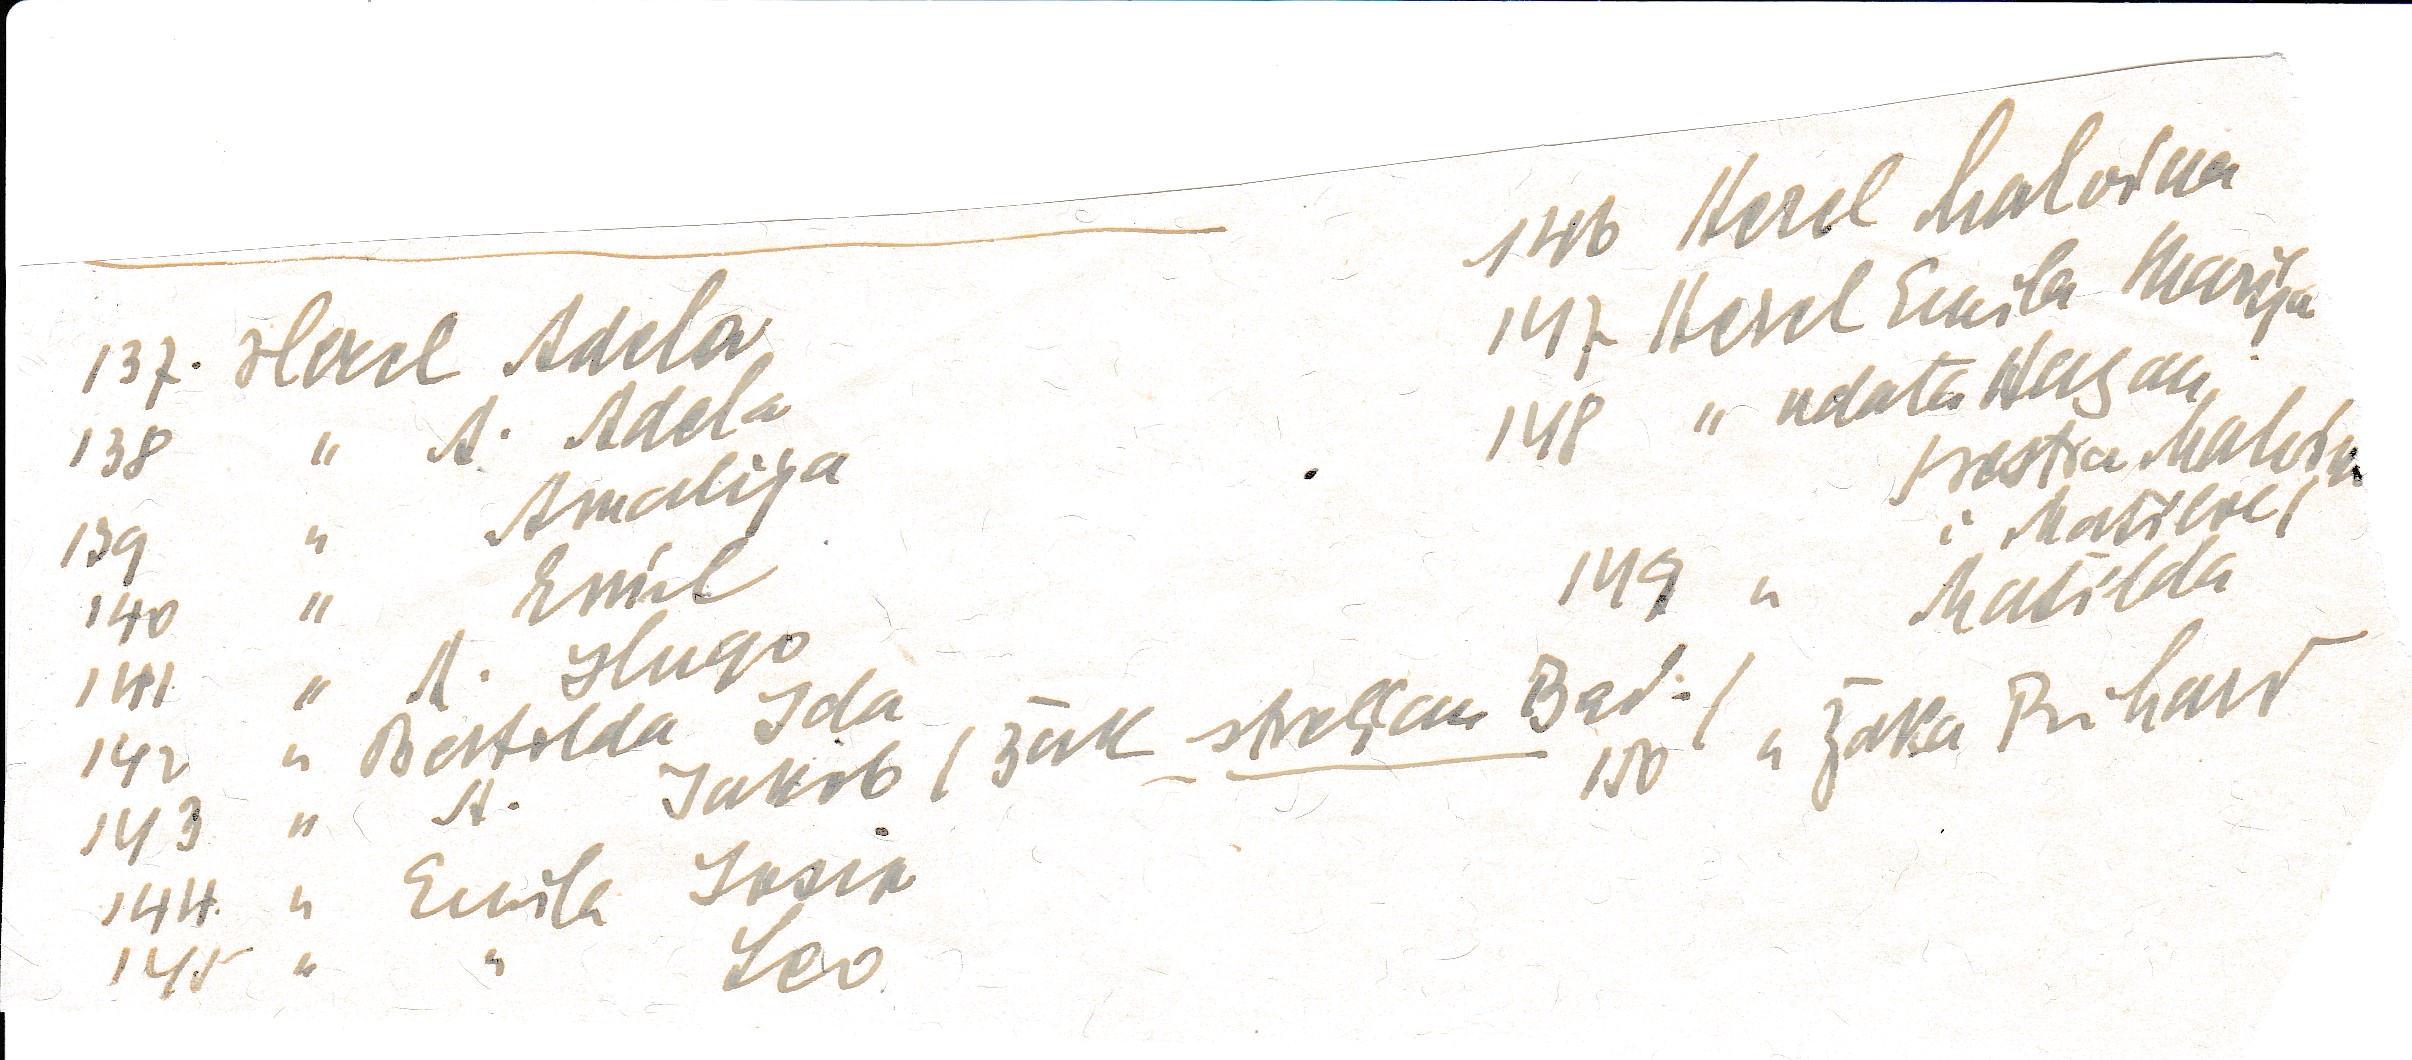 137. Hercl Adela
138 " A. Adela
139 " Amalija
140 " Emil
141 " A. Hugo
142 " Bertolda Ida
143 " A. Jakob (Žak streljan Beč.)
144 " Emila Josip
145 " " Leo
146 Hercl Malvina
147 Hercl Emila Marija
148 " udata
sestra Malvin
i Matilde)
149 " Matilda
150 " Žaka Rihard